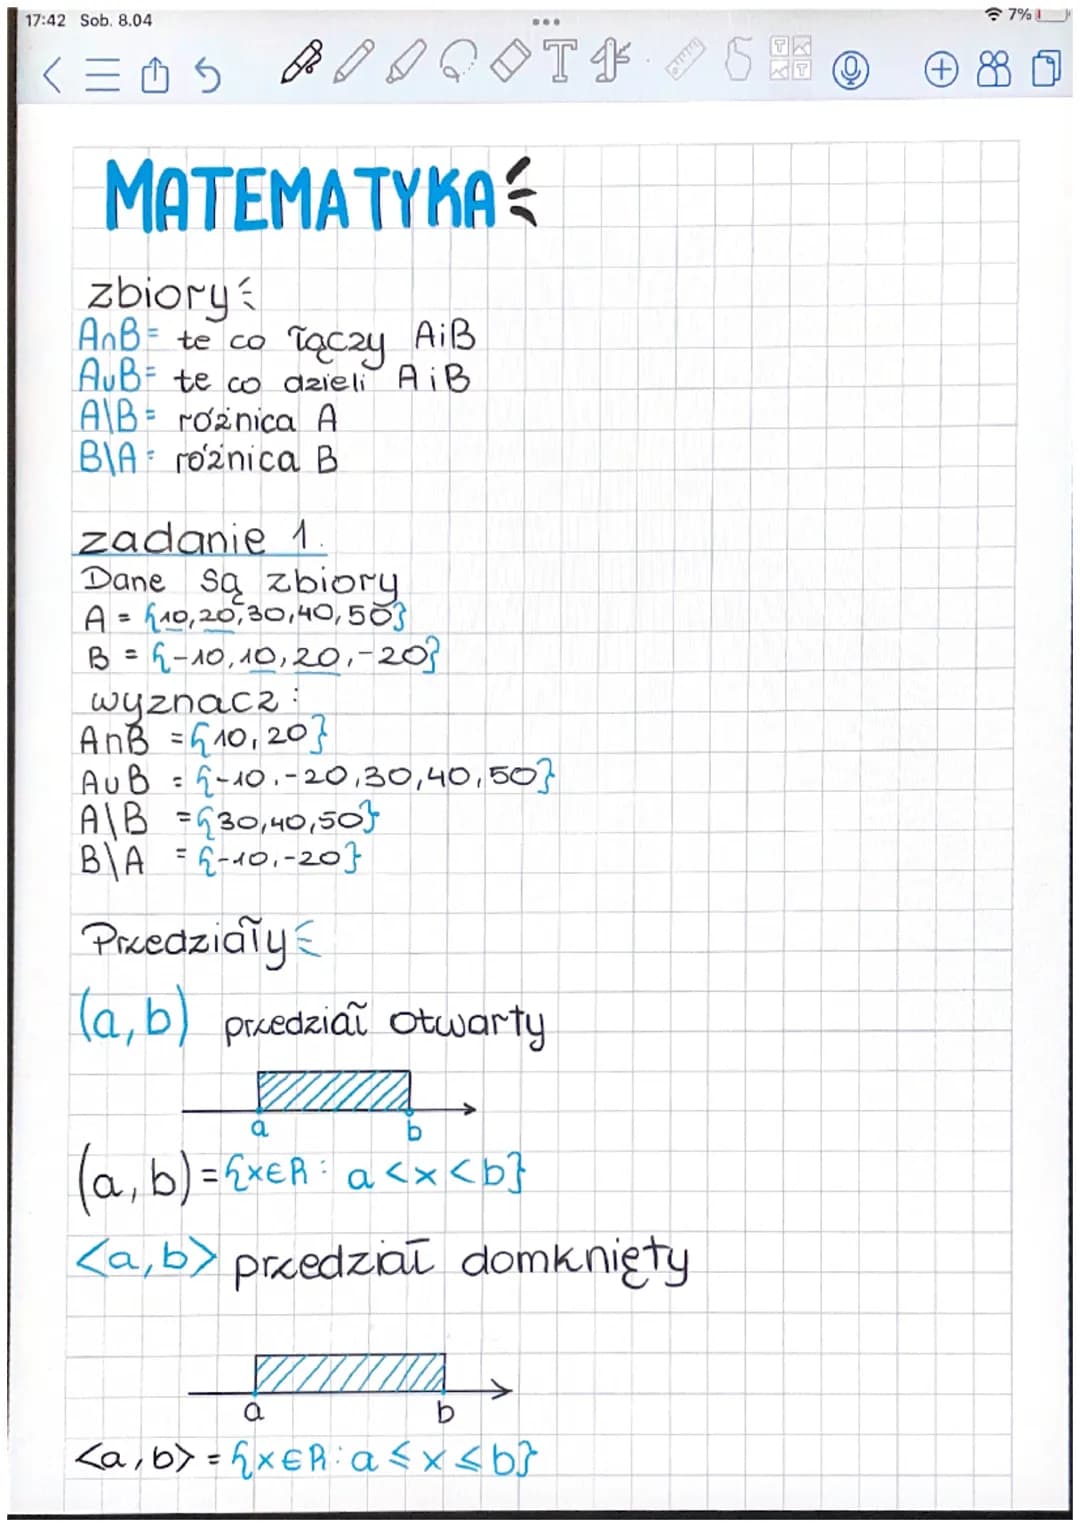 17:42 Sob. 8.04
7%
MATEMATYKA
zbiory
A∩B= te co łączy AiB
A∪B= te co dzieli AiB
A\B= różnica A
B\A= różnica B
zadanie 1.
Dane są zbiory
A = {10,20,30,40,50}
B = {-10,10,20,-20}
wyznacz:
A∩B = {10,20}
A∪B = {-10,-20,30,40,50}
A\B = {30,40,50}
B\A = {-10,-20}
Przedziały
(a,b) przedział otwarty
a b
(a,b) = {x∈R: a<x<b}
<a,b> przedział domknięty
a b
<a,b> = {x∈R: a≤x≤b}